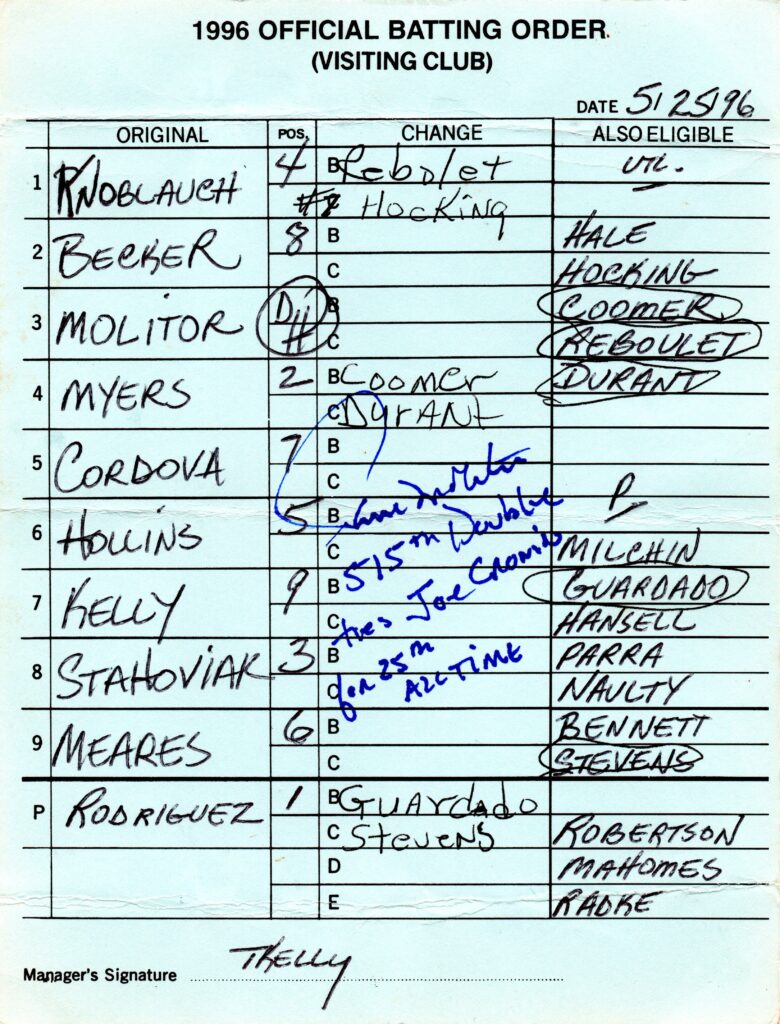 1996 OFFICIAL BATTING ORDER
(VISITING CLUB)
DATE 5/25/96
ORIGINAL POS. CHANGE ALSO ELIGIBLE
1 KNOBLAUCH 4 B Rebolet UTL.
Hocking
2 BECKER 8 B HALE
C HOCKING
3 MOLITOR DH B COOMER
C REBOULET
4 MYERS 2 B Coomer DURANT
C DURANT
5 CORDOVA 7 B
C P
6 HOLLINS 5 B
C MILCHIN
7 KELLY 9 B GUARDADO
C HANSELL
8 STAHOVIAK 3 B PARRA
C NAULTY
9 MEARES 6 B BENNETT
C STEVENS
Molitor
515th Double
ties Joe Cronin
for 25th
ALL TIME
P RODRIGUEZ 1 B GUARDADO
C Stevens ROBERTSON
D MAHOMES
E RADKE
Manager's Signature TKELLY